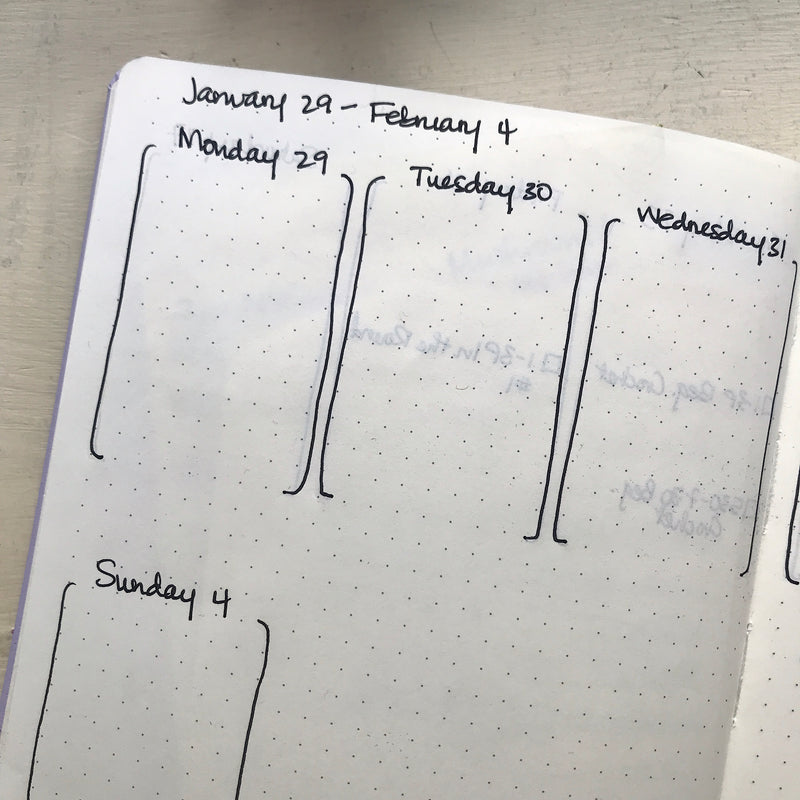 January 29 - February 4
Monday 29
Tuesday 30
Wednesday 31
Sunday 4